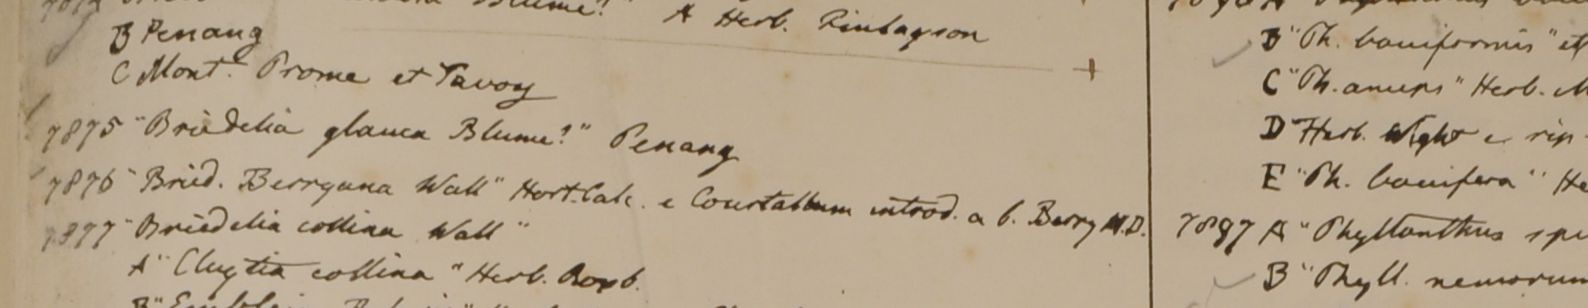 Blume?" A Herb. Finlayson
B Penang
C Mont. Prome et Tavoy
7875 "Briedelia glauca Blume?" Penang
7876 "Bried. Berryana Wall" Hort. Calc. e Courtallum introd. a b. Berry M.D.
7877 "Briedelia collina Wall"
A "Cluytia collina" Herb. Roxb.
B "Ph. bacciformis" et
C "Ph. anceps" Herb.
D Herb. Wight e rip
E "Ph. baccifera" He
7897 A "Phyllanthus spi
B "Phyll. nemorum